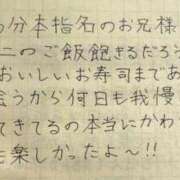 の分本指名のお兄様
ニのご飯飽きるだろう
おいしいお寿司まであ
会うから何日も我慢
てきてるの本当にかわ
も楽しかったよ〜!!